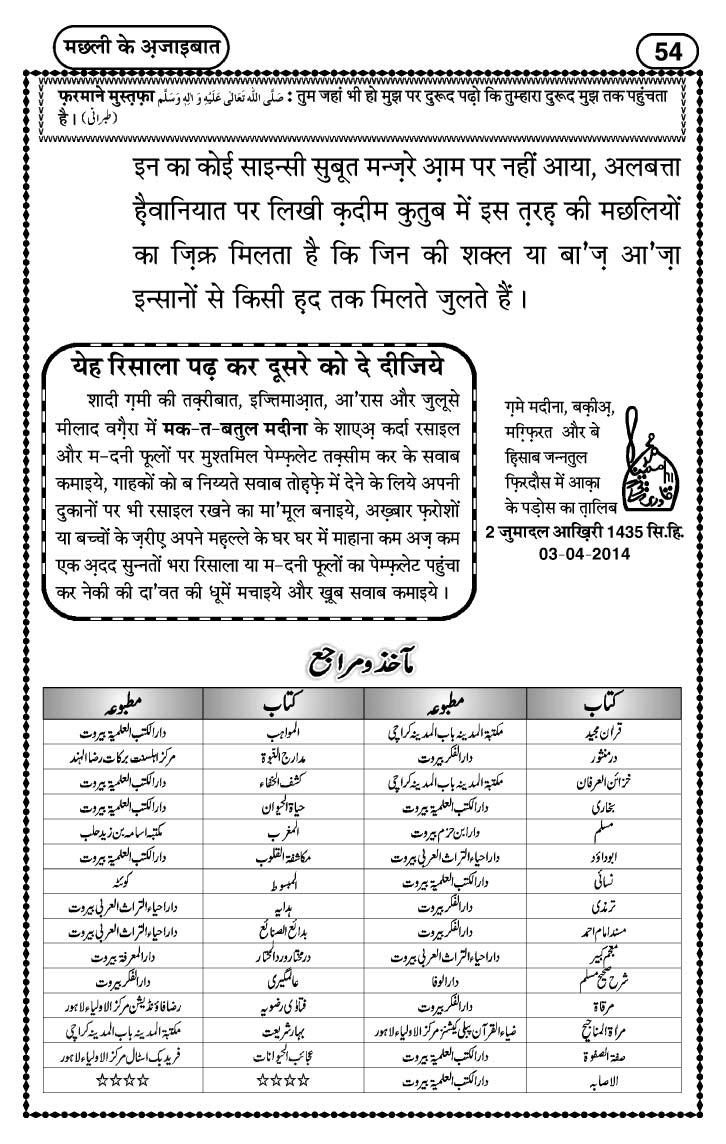 मछली के अ़जाइबात
54
फ़रमाने मुस्त़फ़ा صَلَّى اللّٰهُ تَعَالٰى عَلَيْهِ وَاٰلِهٖ وَسَلَّم : तुम जहां भी हो मुझ पर दुरूद पढ़ो कि तुम्हारा दुरूद मुझ तक पहुंचता
है। (طبرانی)
इन का कोई साइन्सी सुबूत मन्ज़रे आ़म पर नहीं आया, अलबत्ता
ह़ैवानियात पर लिखी क़दीम कुतुब में इस त़रह़ की मछलियों
का ज़िक्र मिलता है कि जिन की शक्ल या बा'ज़ आ'ज़ा
इन्सानों से किसी ह़द तक मिलते जुलते हैं।
येह रिसाला पढ़ कर दूसरे को दे दीजिये
शादी ग़मी की तक़्रीबात, इज्तिमाआ़त, आ'रास और जुलूसे
मीलाद वग़ैरा में मक-त-बतुल मदीना के शाएअ़ कर्दा रसाइल
और म-दनी फूलों पर मुश्तमिल पेम्फ़लेट तक़्सीम कर के सवाब
कमाइये, गाहकों को ब निय्यते सवाब तोह़फ़े में देने के लिये अपनी
दुकानों पर भी रसाइल रखने का मा'मूल बनाइये, अख़्बार फ़रोशों
या बच्चों के ज़रीए़ अपने मह़ल्ले के घर घर में माहाना कम अज़ कम
एक अ़दद सुन्नतों भरा रिसाला या म-दनी फूलों का पेम्फ़लेट पहुंचा
कर नेकी की दा'वत की धूमें मचाइये और ख़ूब सवाब कमाइये।
ग़मे मदीना, बक़ीअ़,
मग़्फ़िरत और बे
ह़िसाब जन्नतुल
फ़िरदौस में आक़ा
के पड़ोस का त़ालिब
2 जुमादल आख़िरी 1435 सि.हि.
03-04-2014
مآخذ و مراجع
کتاب مطبوعہ کتاب مطبوعہ
قران مجید مکتبۃ المدینہ باب المدینہ کراچی المواہب دارالکتب العلمیۃ بیروت
درمنثور دارالفکر بیروت مدارج النبوۃ مرکز اہلسنت برکات رضا الہند
خزائن العرفان مکتبۃ المدینہ باب المدینہ کراچی کشف الخفاء دارالکتب العلمیۃ بیروت
بخاری دارالکتب العلمیۃ بیروت حیاۃ الحیوان دارالکتب العلمیۃ بیروت
مسلم دارابن حزم بیروت المغرب مکتبہ اسامہ بن زید حلب
ابوداؤد داراحیاء التراث العربی بیروت مکاشفۃ القلوب دارالکتب العلمیۃ بیروت
نسائی دارالکتب العلمیۃ بیروت المبسوط کوئٹہ
ترمذی دارالفکر بیروت ہدایہ داراحیاء التراث العربی بیروت
مسند امام احمد دارالفکر بیروت بدائع الصنائع داراحیاء التراث العربی بیروت
معجم کبیر داراحیاء التراث العربی بیروت درمختار وردالمحتار دارالمعرفۃ بیروت
شرح صحیح مسلم دارالوفا عالمگیری دارالفکر بیروت
مرقاۃ دارالفکر بیروت فتاوٰی رضویہ رضا فاؤنڈیشن مرکز الاولیاء لاہور
مراۃ المناجیح ضیاء القرآن پبلی کیشنز مرکز الاولیاء لاہور بہار شریعت مکتبۃ المدینہ باب المدینہ کراچی
صفۃ الصفوۃ دارالکتب العلمیۃ بیروت عجائب الحیوانات فرید بک اسٹال مرکز الاولیاء لاہور
الاصابہ دارالکتب العلمیۃ بیروت ☆☆☆☆ ☆☆☆☆